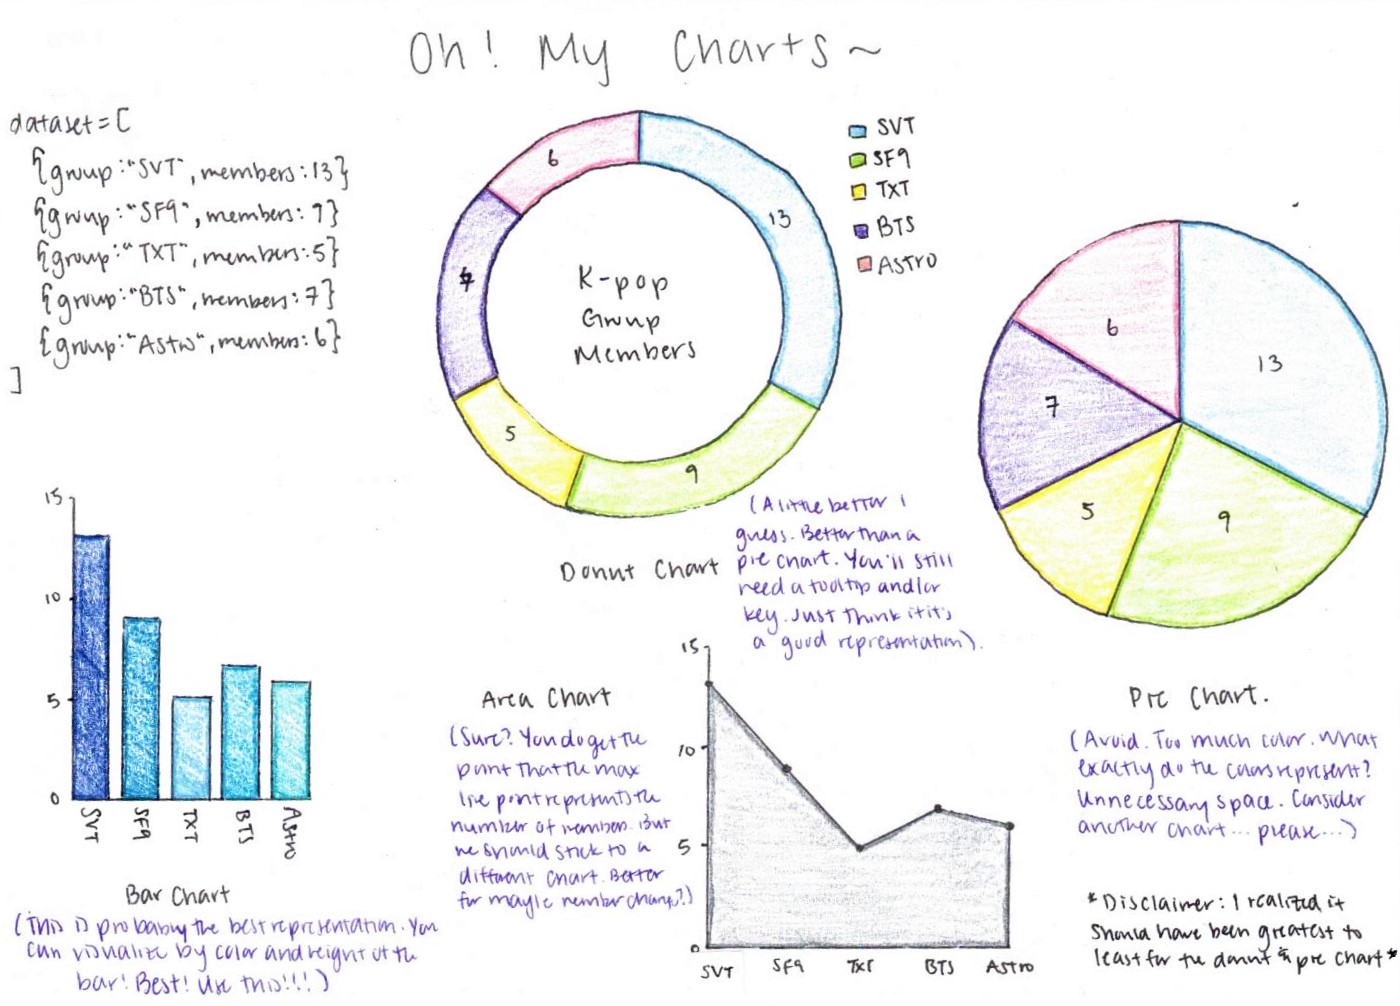 Oh! My Charts ~
dataset = [
{group: "SVT", members: 13}
{group: "SF9", members: 9}
{group: "TXT", members: 5}
{group: "BTS", members: 7}
{group: "Astro", members: 6}
]
6
13
7
5
9
K-pop
Group
Members
SVT
SF9
TXT
BTS
Astro
Donut Chart
(A little better I
guess. Better than a
pie chart. You'll still
need a tooltip and/or
key. Just think if it's
a good representation).
6
13
7
5
9
Pie Chart.
(Avoid. Too much color. What
exactly do the colors represent?
Unnecessary space. Consider
another chart... please...)
15
10
5
0
SVT
SF9
TXT
BTS
Astro
Bar Chart
(This is probably the best representation. You
can visualize by color and height of the
bar! Best! Use this!!!)
Area Chart
(Sure? You do get the
point that the max
line point represents the
number of members. But
we should stick to a
different chart. Better
for maybe member change?)
15
10
5
0
SVT
SF9
TXT
BTS
Astro
* Disclaimer: I realized it
should have been greatest to
least for the donut & pie chart *